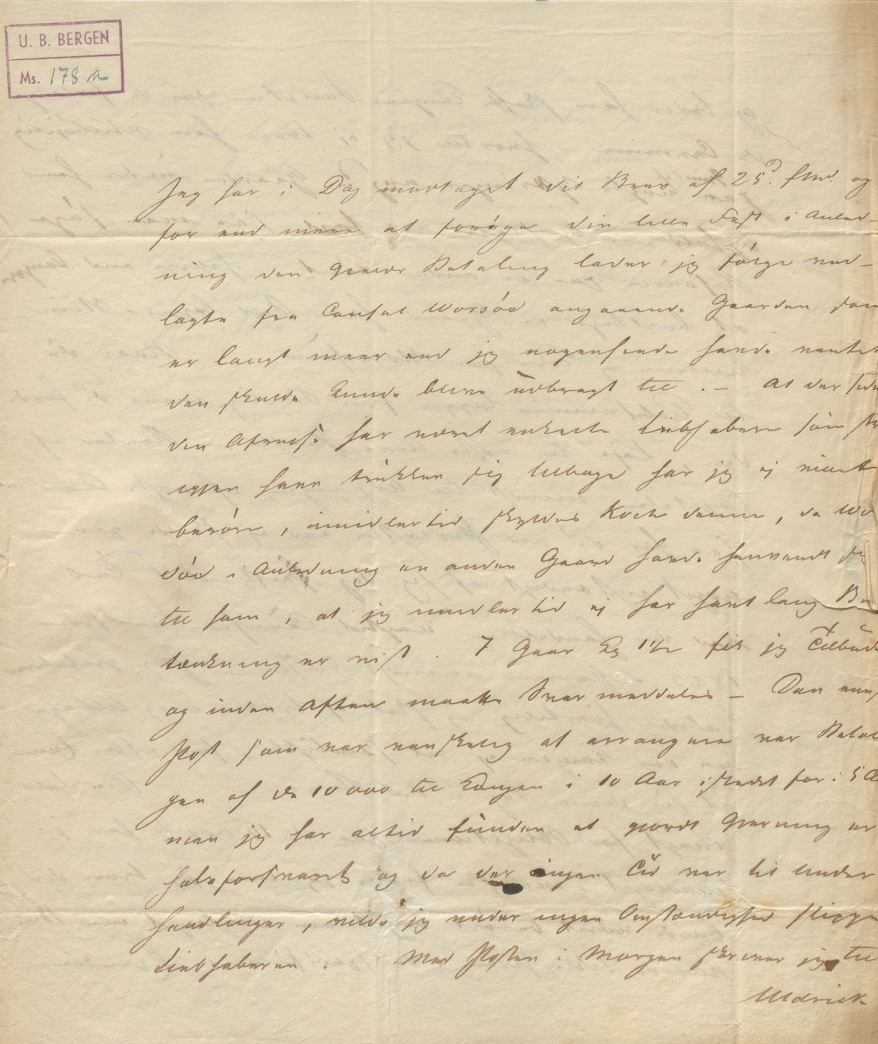 U. B. BERGEN
Ms. 178 a
Jeg har i Dag modtaget dit Brev af 25d. og
for end mere at forøge din lille Fest i Anled-
ning den Betaling lader jeg følge ved-
lagte fra Consul Worsöe angaaende Gaarden som
er langt meer end jeg nogensinde havde ventet
den skulde kunde blive udbragt til. – At der siden
den har været enkelte Liebhabere som
igjen have trukken sig tilbage har jeg ej
, imidlertid skyldes Koch denne, da Wor
söe i Anledning en anden Gaard havde henvendt sig
til ham, at jeg imidlertid ej har havt lang Be
tænkning er vist. 7 fik jeg Tilbud
og inden Aften maatte Svar meddeles – Den eneste
Post som var vanskelig at arrangere var Betal
gen af de 10000 til i 10 Aar istedet for i 5 A
men jeg har altid funden at gjordt Gjerning er
halvforsvaret og da der ingen Tid var til Under
handlinger, vilde jeg under ingen Omstændighed slippe
Liebhaberen. Med Posten i Morgen skriver jeg til